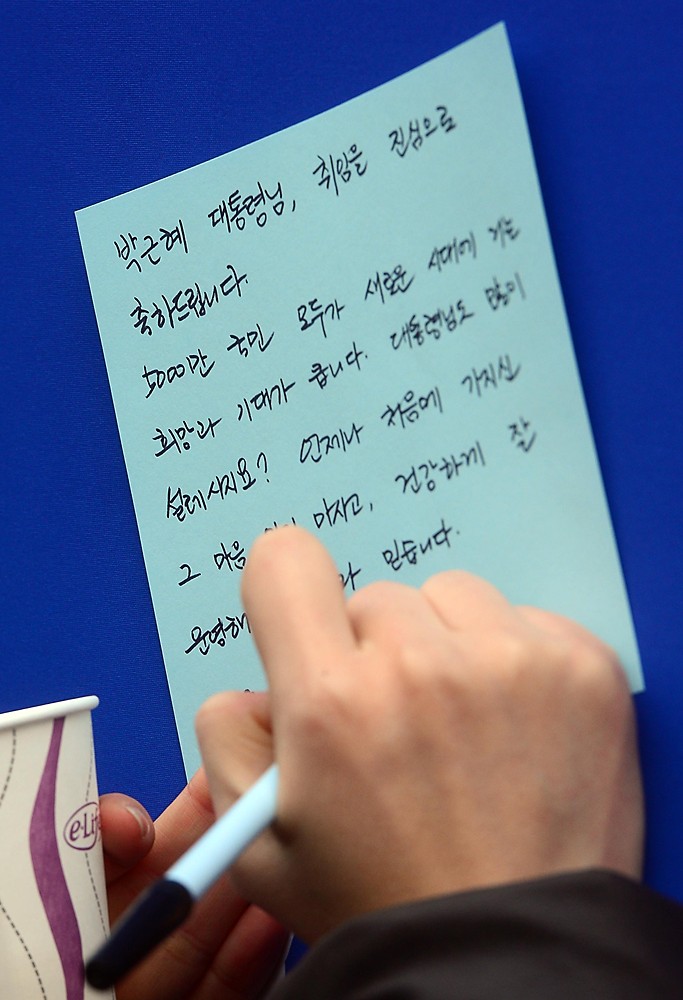 박근혜 대통령님, 취임을 진심으로
축하드립니다.
5000만 국민 모두가 새로운 시대에 거는
희망과 기대가 큽니다. 대통령님도 많이
설레시지요? 언제나 처음에 가지신
그 마음 마시고, 건강하게 잘
운영해 믿습니다.
e·Li